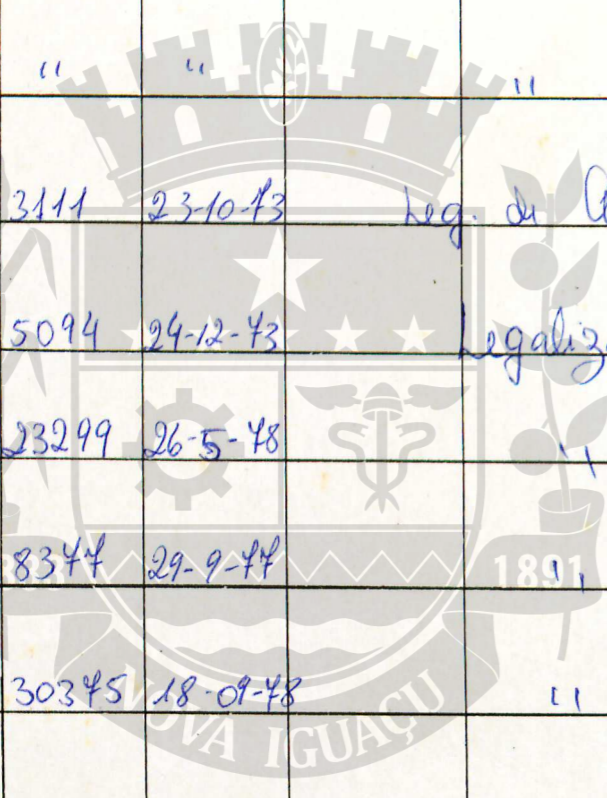 " " "
3111 23-10-73 Leg. de
5094 24-12-73 Legaliz
23299 26-5-78 "
8377 29-9-77 "
30375 18-09-78 "
1891
NOVA IGUAÇU